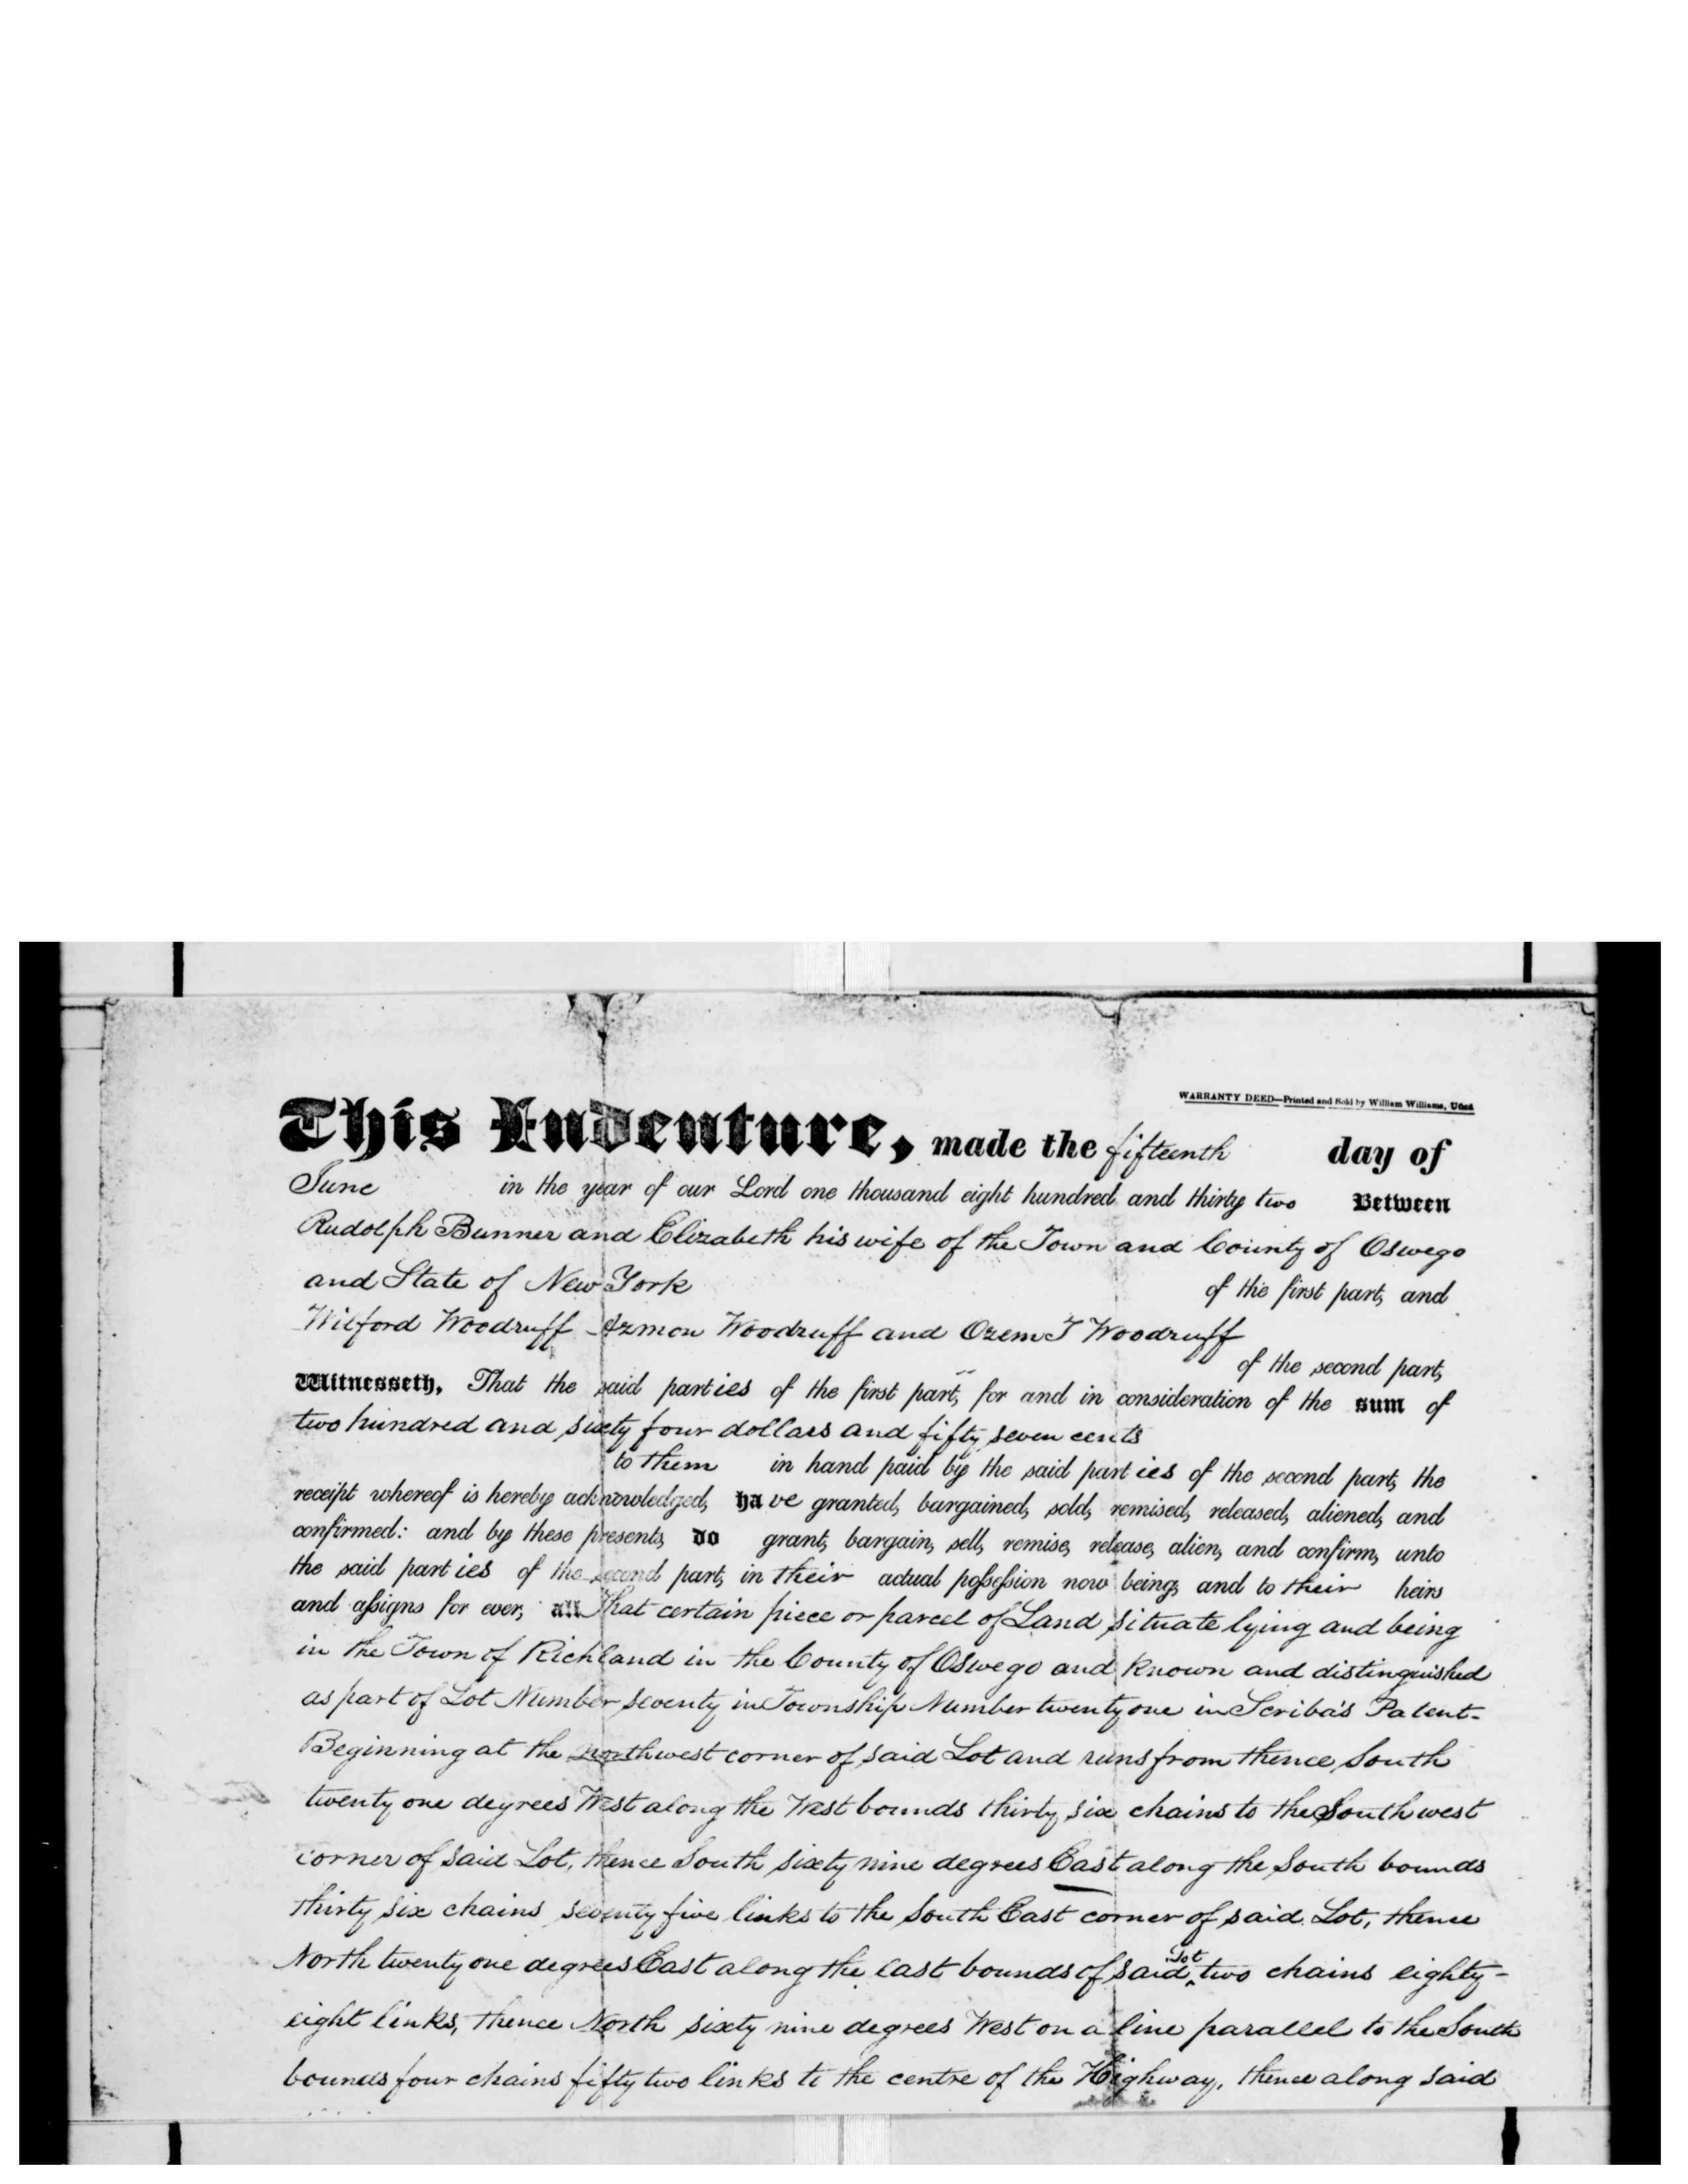 WARRANTY DEED—Printed and Sold by William Williams, Utica
This Indenture, made the fifteenth day of
June in the year of our Lord one thousand eight hundred and thirty two Between
Rudolph Bunner and Elizabeth his wife of the Town and County of Oswego
and State of New York of the first part, and
Wilford Woodruff Azmon Woodruff and Ozem T Woodruff
of the second part,
Witnesseth, That the said parties of the first part, for and in consideration of the sum of
two hundred and sixty four dollars and fifty seven cents
to them in hand paid by the said parties of the second part, the
receipt whereof is hereby acknowledged, have granted, bargained, sold, remised, released, aliened, and
confirmed: and by these presents, do grant, bargain, sell, remise, release, alien, and confirm, unto
the said parties of the second part, in their actual possession now being, and to their heirs
and assigns for ever, all That certain piece or parcel of Land situate lying and being
in the Town of Richland in the County of Oswego and known and distinguished
as part of Lot Number seventy in Township Number twenty one in Scriba's Patent-
Beginning at the northwest corner of said Lot and runs from thence South
twenty one degrees West along the West bounds thirty six chains to the South west
corner of said Lot, thence South sixty nine degrees East along the South bounds
thirty six chains seventy five links to the South East corner of said Lot, thence
North twenty one degrees East along the east bounds of said Lot two chains eighty-
eight links, thence North sixty nine degrees West on a line parallel to the South
bounds four chains fifty two links to the centre of the Highway, thence along said